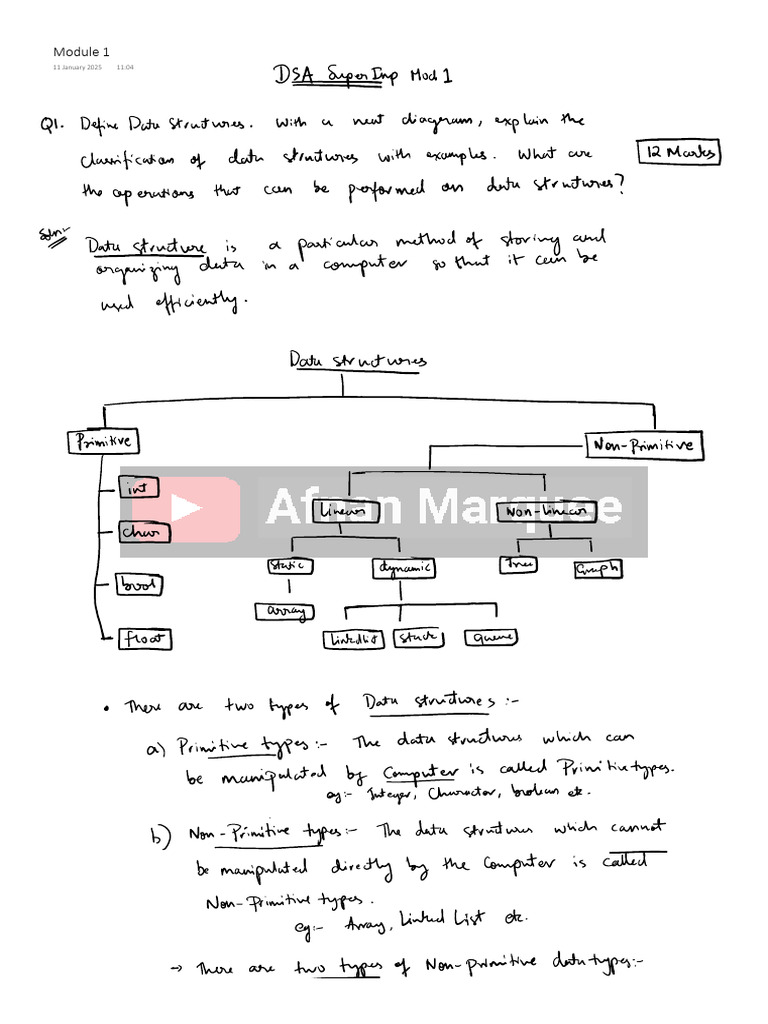 Module 1
11 January 2025 11:04
DSA SuperImp Mod 1
Q1. Define Data Structures. With a neat diagram, explain the
classification of data structures with examples. What are
the operations that can be performed on data structures?
12 Marks
Soln:-
Data structure is a particular method of storing and
organizing data in a computer so that it can be
used efficiently.
Data structures
Primitive
Non-Primitive
int
char
bool
float
Linear
Non-linear
static
dynamic
Tree
Graph
array
linkedlist
stack
queue
Afnan Marquee
• There are two types of Data structures :-
a) Primitive types :- The data structures which can
be manipulated by Computer is called Primitive types.
eg:- Integer, Character, boolean etc.
b) Non-Primitive types:- The data structures which cannot
be manipulated directly by the Computer is called
Non-Primitive types.
eg:- Array, Linked List etc.
→ There are two types of Non-primitive data types:-